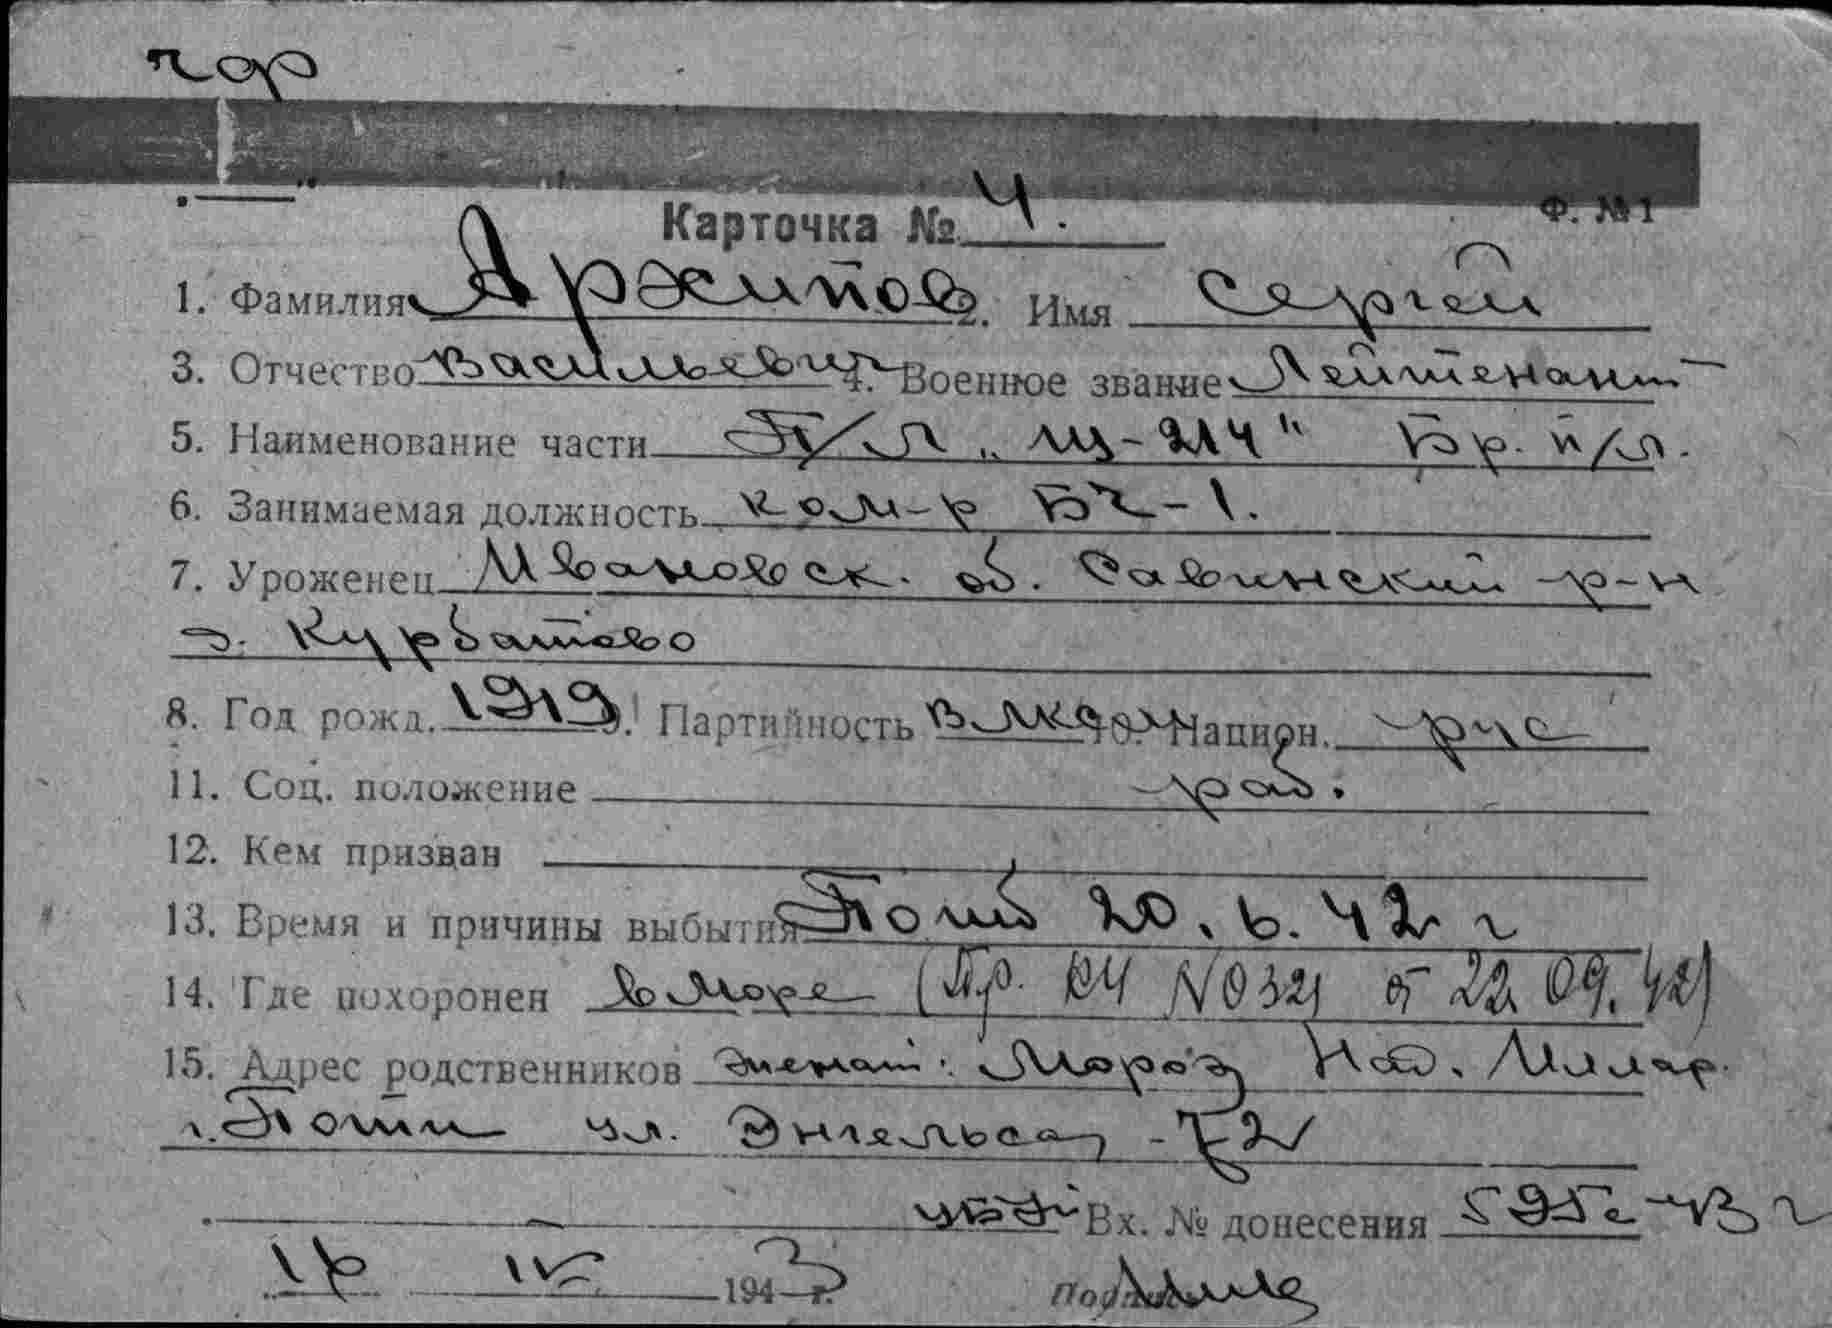 Ф. №1
Карточка № 4.
1. Фамилия Архипов 2. Имя Сергей
3. Отчество Васильевич 4. Военное звание Лейтенант
5. Наименование части П/Л „Щ-214" Бр. п/л.
6. Занимаемая должность ком-р БЧ-1.
7. Уроженец Ивановск. об. Савинский р-н
д. Курбатово
8. Год рожд. 1919 9. Партийность ВЛКСМ 10. Национ. рус
11. Соц. положение раб.
12. Кем призван
13. Время и причины выбытия Погиб 20.6.42 г
14. Где похоронен в море (Пр. ЧФ от 22 09.42)
15. Адрес родственников Мороз
г. Поти ул. Энгельса, 
Вх. № донесения
194 3 г.